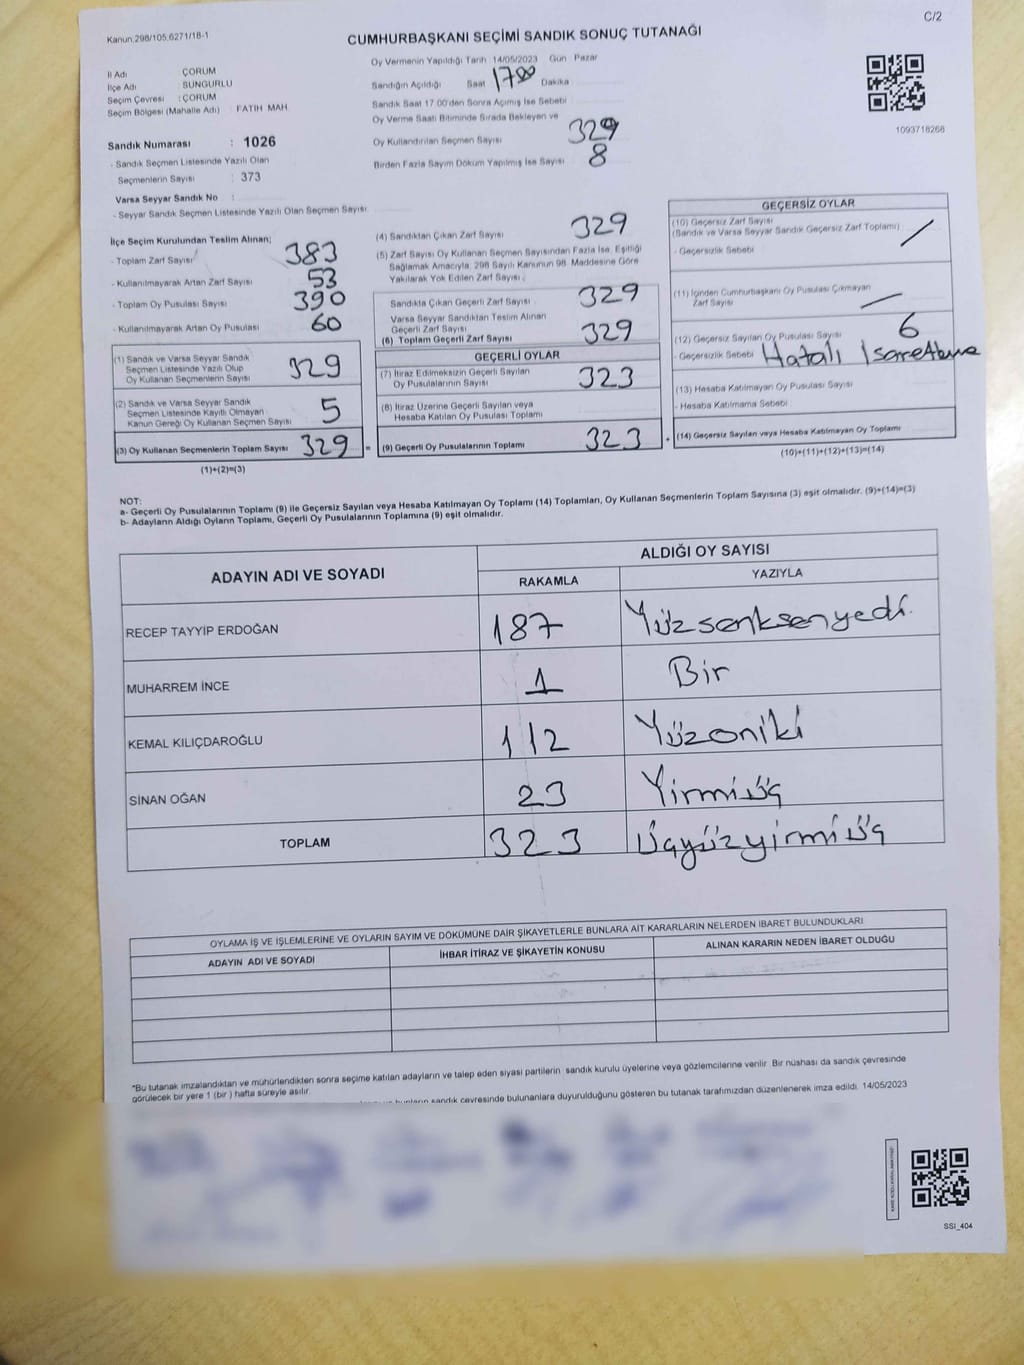 C/2
Kanun.298/105.6271/18-1
CUMHURBAŞKANI SEÇİMİ SANDIK SONUÇ TUTANAĞI
İl Adı ÇORUM
İlçe Adı SUNGURLU
Seçim Çevresi : ÇORUM
Seçim Bölgesi (Mahalle Adı) : FATİH MAH.
Oy Vermenin Yapıldığı Tarih 14/05/2023 Gün Pazar
Sandığın Açıldığı Saat 17 00 Dakika
Sandık Saat 17.00'den Sonra Açılmış İse Sebebi
Oy Verme Saati Bitiminde Sırada Bekleyen ve
Oy Kullandırılan Seçmen Sayısı 329
Birden Fazla Sayım Döküm Yapılmış İse Sayısı 8
1093718268
Sandık Numarası : 1026
- Sandık Seçmen Listesinde Yazılı Olan
Seçmenlerin Sayısı : 373
Varsa Seyyar Sandık No :
- Seyyar Sandık Seçmen Listesinde Yazılı Olan Seçmen Sayısı:
İlçe Seçim Kurulundan Teslim Alınan;
- Toplam Zarf Sayısı 383
- Kullanılmayarak Artan Zarf Sayısı 53
- Toplam Oy Pusulası Sayısı 390
- Kullanılmayarak Artan Oy Pusulası 60
(1) Sandık ve Varsa Seyyar Sandık
Seçmen Listesinde Yazılı Olup
Oy Kullanan Seçmenlerin Sayısı 329
(2) Sandık ve Varsa Seyyar Sandık
Seçmen Listesinde Kayıtlı Olmayan
Kanun Gereği Oy Kullanan Seçmen Sayısı 5
(3) Oy Kullanan Seçmenlerin Toplam Sayısı 329 =
(1)+(2)=(3)
(4) Sandıktan Çıkan Zarf Sayısı 329
(5) Zarf Sayısı Oy Kullanan Seçmen Sayısından Fazla İse, Eşitliği
Sağlamak Amacıyla, 298 Sayılı Kanunun 98. Maddesine Göre
Yakılarak Yok Edilen Zarf Sayısı :
Sandıkta Çıkan Geçerli Zarf Sayısı 329
Varsa Seyyar Sandıktan Teslim Alınan
Geçerli Zarf Sayısı
(6) Toplam Geçerli Zarf Sayısı 329
GEÇERLİ OYLAR
(7) İtiraz Edilmeksizin Geçerli Sayılan
Oy Pusulalarının Sayısı 323
(8) İtiraz Üzerine Geçerli Sayılan veya
Hesaba Katılan Oy Pusulası Toplamı
(9) Geçerli Oy Pusulalarının Toplamı 323 +
GEÇERSİZ OYLAR
(10) Geçersiz Zarf Sayısı
(Sandık ve Varsa Seyyar Sandık Geçersiz Zarf Toplamı) /
- Geçersizlik Sebebi
(11) İçinden Cumhurbaşkanı Oy Pusulası Çıkmayan
Zarf Sayısı —
(12) Geçersiz Sayılan Oy Pusulası Sayısı 6
- Geçersizlik Sebebi Hatalı İşaretleme
(13) Hesaba Katılmayan Oy Pusulası Sayısı
- Hesaba Katılmama Sebebi
(14) Geçersiz Sayılan veya Hesaba Katılmayan Oy Toplamı
(10)+(11)+(12)+(13)=(14)
NOT:
a- Geçerli Oy Pusulalarının Toplamı (9) ile Geçersiz Sayılan veya Hesaba Katılmayan Oy Toplamı (14) Toplamları, Oy Kullanan Seçmenlerin Toplam Sayısına (3) eşit olmalıdır. (9)+(14)=(3)
b- Adayların Aldığı Oyların Toplamı, Geçerli Oy Pusulalarının Toplamına (9) eşit olmalıdır.
ADAYIN ADI VE SOYADI ALDIĞI OY SAYISI
RAKAMLA YAZIYLA
RECEP TAYYİP ERDOĞAN 187 Yüzsenksenyedi.
MUHARREM İNCE 1 Bir
KEMAL KILIÇDAROĞLU 112 Yüzoniki
SİNAN OĞAN 23 Yirmiüç
TOPLAM 323 Üçyüzyirmiüç
OYLAMA İŞ VE İŞLEMLERİNE VE OYLARIN SAYIM VE DÖKÜMÜNE DAİR ŞİKAYETLERLE BUNLARA AİT KARARLARIN NELERDEN İBARET BULUNDUKLARI
ADAYIN ADI VE SOYADI İHBAR İTİRAZ VE ŞİKAYETİN KONUSU ALINAN KARARIN NEDEN İBARET OLDUĞU
*Bu tutanak imzalandıktan ve mühürlendikten sonra seçime katılan adayların ve talep eden siyasi partilerin sandık kurulu üyelerine veya gözlemcilerine verilir. Bir nüshası da sandık çevresinde
görülecek bir yere 1 (bir ) hafta süreyle asılır.
sandık çevresinde bulunanlara duyurulduğunu gösteren bu tutanak tarafımızdan düzenlenerek imza edildi. 14/05/2023
SSİ_404